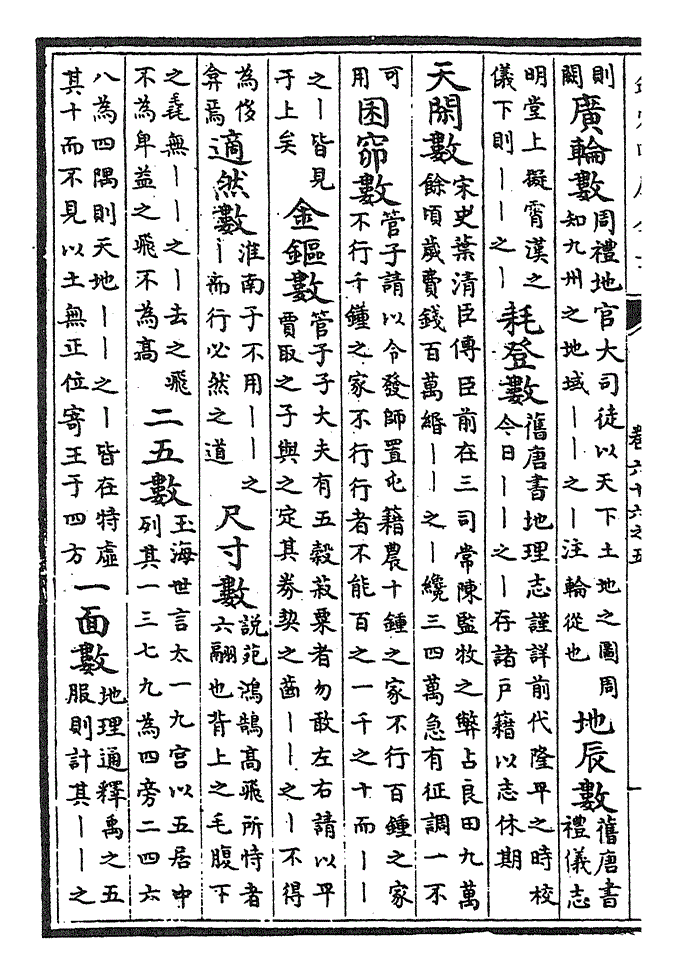 卷六十六之五
則
闕
廣輪數
周禮地官大司徒以天下土地之圖周
知九州之地域丨丨之丨注輪從也
地辰數
舊唐書
禮儀志
明堂上擬霄漢之
儀下則丨丨之丨
耗登數
舊唐書地理志謹詳前代隆平之時校
今日丨丨之丨存諸戶籍以志休期
天閑數
宋史葉清臣傳臣前在三司常陳監牧之弊占良田九萬
餘頃歲費錢百萬緡丨丨之丨纔三四萬急有征調一不
可
用
囷窌數
管子請以令發師置屯籍農十鍾之家不行百鍾之家
不行千鍾之家不行行者不能百之一千之十而丨丨
之丨皆見
于上矣
金鏂數
管子子大夫有五穀菽粟者勿敢左右請以平
賈取之子與之定其券契之齒丨丨之丨不得
為侈
弇焉
適然數
淮南子不用丨丨之
丨而行必然之道
尺寸數
說苑鴻鵠高飛所恃者
六翮也背上之毛腹下
之毳無丨丨之丨去之飛
不為卑益之飛不為高
二五數
玉海世言太一九宮以五居中
列其一三七九為四旁二四六
八為四隅則天地丨丨之丨皆在特虛
其十而不見以土無正位寄王于四方
一面數
地理通釋禹之五
服則計其丨丨之